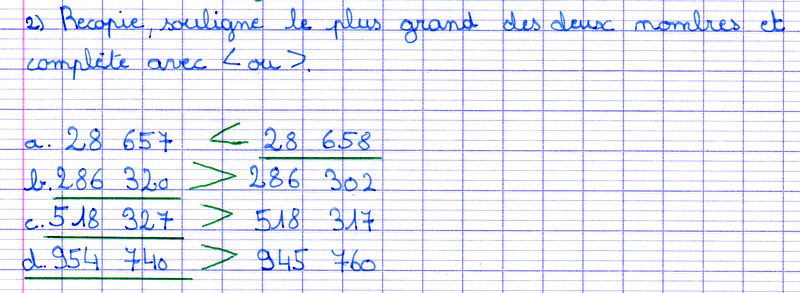 2) Recopie, souligne le plus grand des deux nombres et
complète avec < ou >.
a. 28 657 < 28 658
b. 286 320 > 286 302
c. 518 327 > 518 317
d. 954 740 > 945 760